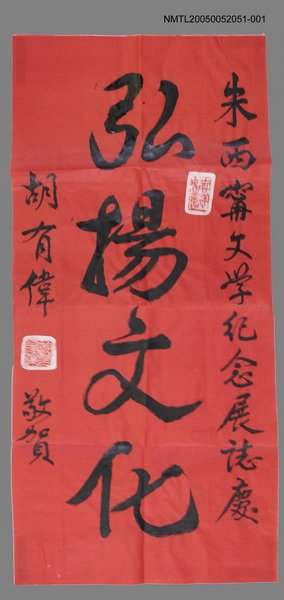 NMTL20050052051-001
朱西甯文学纪念展誌慶
弘揚文化
胡有偉
敬賀